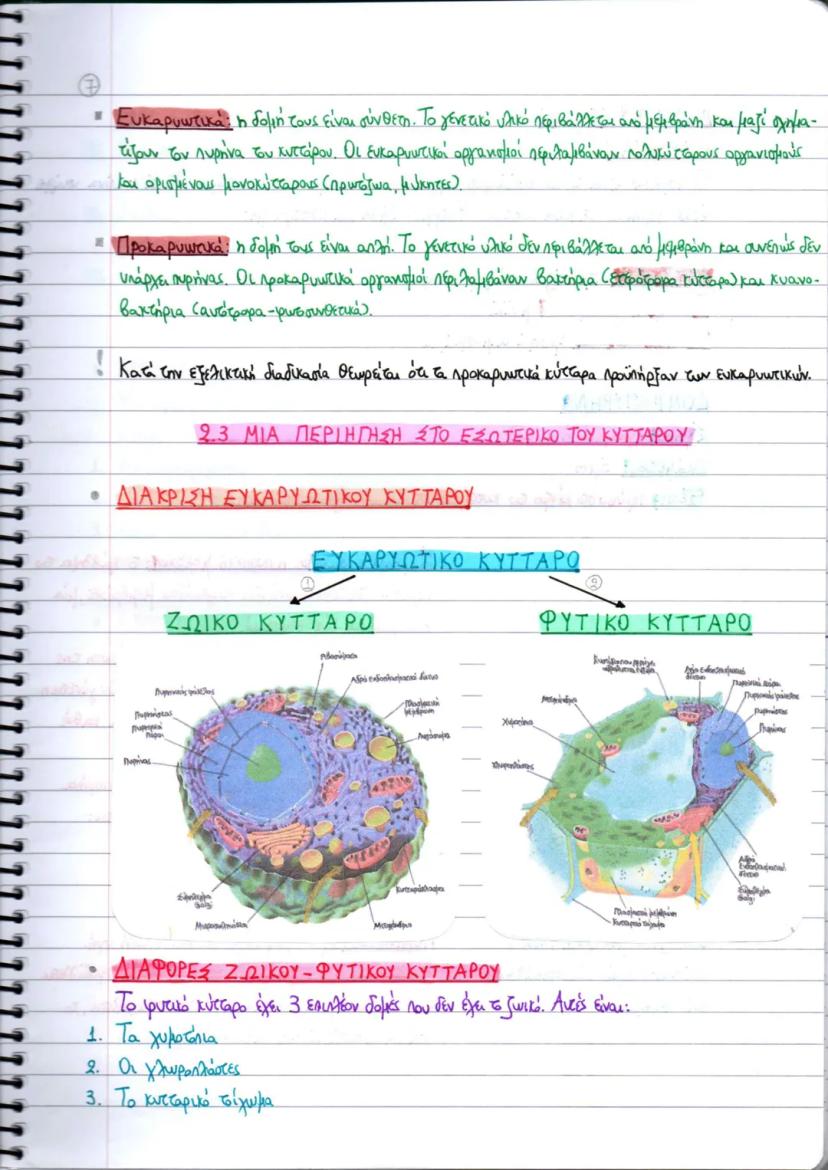 7
Ευκαρυωτικά: η δομή τους είναι σύνθετη. Το γενετικό υλικό περιβάλλεται από μεμβράνη και μαζί σχημα-
τίζουν τον πυρήνα του κυττάρου. Οι ευκαρυωτικοί οργανισμοί περιλαμβάνουν πολυκύτταρους οργανισμούς
και ορισμένους μονοκύτταρους (πρωτόζωα, μύκητες).
Προκαρυωτικά: η δομή τους είναι απλή. Το γενετικό υλικό δεν περιβάλλεται από μεμβράνη και συνεπώς δεν
υπάρχει πυρήνας. Οι προκαρυωτικοί οργανισμοί περιλαμβάνουν βακτήρια (ετερότροφα κύτταρα) και κυανο-
βακτήρια (αυτότροφα-φωτοσυνθετικά).
! Κατά την εξελικτική διαδικασία θεωρείται ότι τα προκαρυωτικά κύτταρα προϋπήρξαν των ευκαρυωτικών.
2.3 ΜΙΑ ΠΕΡΙΗΓΗΣΗ ΣΤΟ ΕΣΩΤΕΡΙΚΟ ΤΟΥ ΚΥΤΤΑΡΟΥ
• ΔΙΑΚΡΙΣΗ ΕΥΚΑΡΥΩΤΙΚΟΥ ΚΥΤΤΑΡΟΥ
ΕΥΚΑΡΥΩΤΙΚΟ ΚΥΤΤΑΡΟ
1 2
ΖΩΙΚΟ ΚΥΤΤΑΡΟ
ΦΥΤΙΚΟ ΚΥΤΤΑΡΟ
Ριβοσώματα
Αδρό ενδοπλασματικό δίκτυο
Πλασματική
μεμβράνη
Λυσόσωμα
Πυρηνικός φάκελος
Πυρηνίσκος
Πυρηνικοί
πόροι
Πυρήνας
Σύμπλεγμα
Golgi
Μιτοχόνδριο
Κυτταρόπλασμα
Αδρό Ενδοπλασματικό
δίκτυο
Πυρηνικοί πόροι
Πυρηνικός φάκελος
Πυρηνίσκος
Πυρήνας
Μιτοχόνδριο
Χυμοτόπιο
Χλωροπλάστης
Ενδοπλασματικό
δίκτυο
Σύμπλεγμα
Golgi
Πλασματική μεμβράνη
Κυτταρικό τοίχωμα
• ΔΙΑΦΟΡΕΣ ΖΩΙΚΟΥ-ΦΥΤΙΚΟΥ ΚΥΤΤΑΡΟΥ
Το φυτικό κύτταρο έχει 3 επιπλέον δομές που δεν έχει το ζωικό. Αυτές είναι:
1. Τα χυμοτόπια
2. Οι χλωροπλάστες
3. Το κυτταρικό τοίχωμα